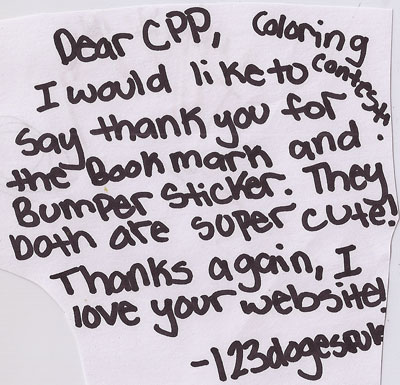 Dear CPP, Coloring
I would like to Contest!
say thank you for
the Bookmark and
Bumper Sticker. They
both are super cute!
Thanks again, I
love your website!
-123dogesRule